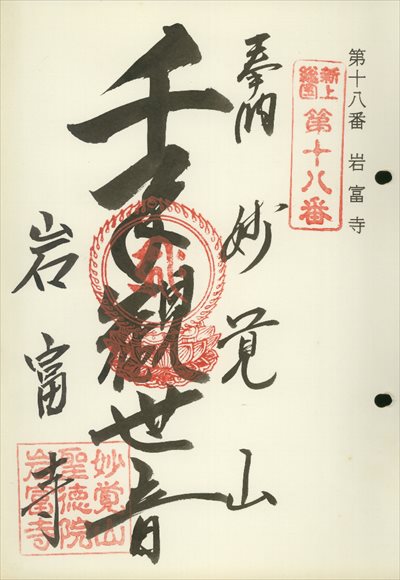 第十八番 岩富寺
新上
総国
第十八番
奉納 妙覚山
千手観世音
岩富寺
妙覚山
聖徳院
岩富寺